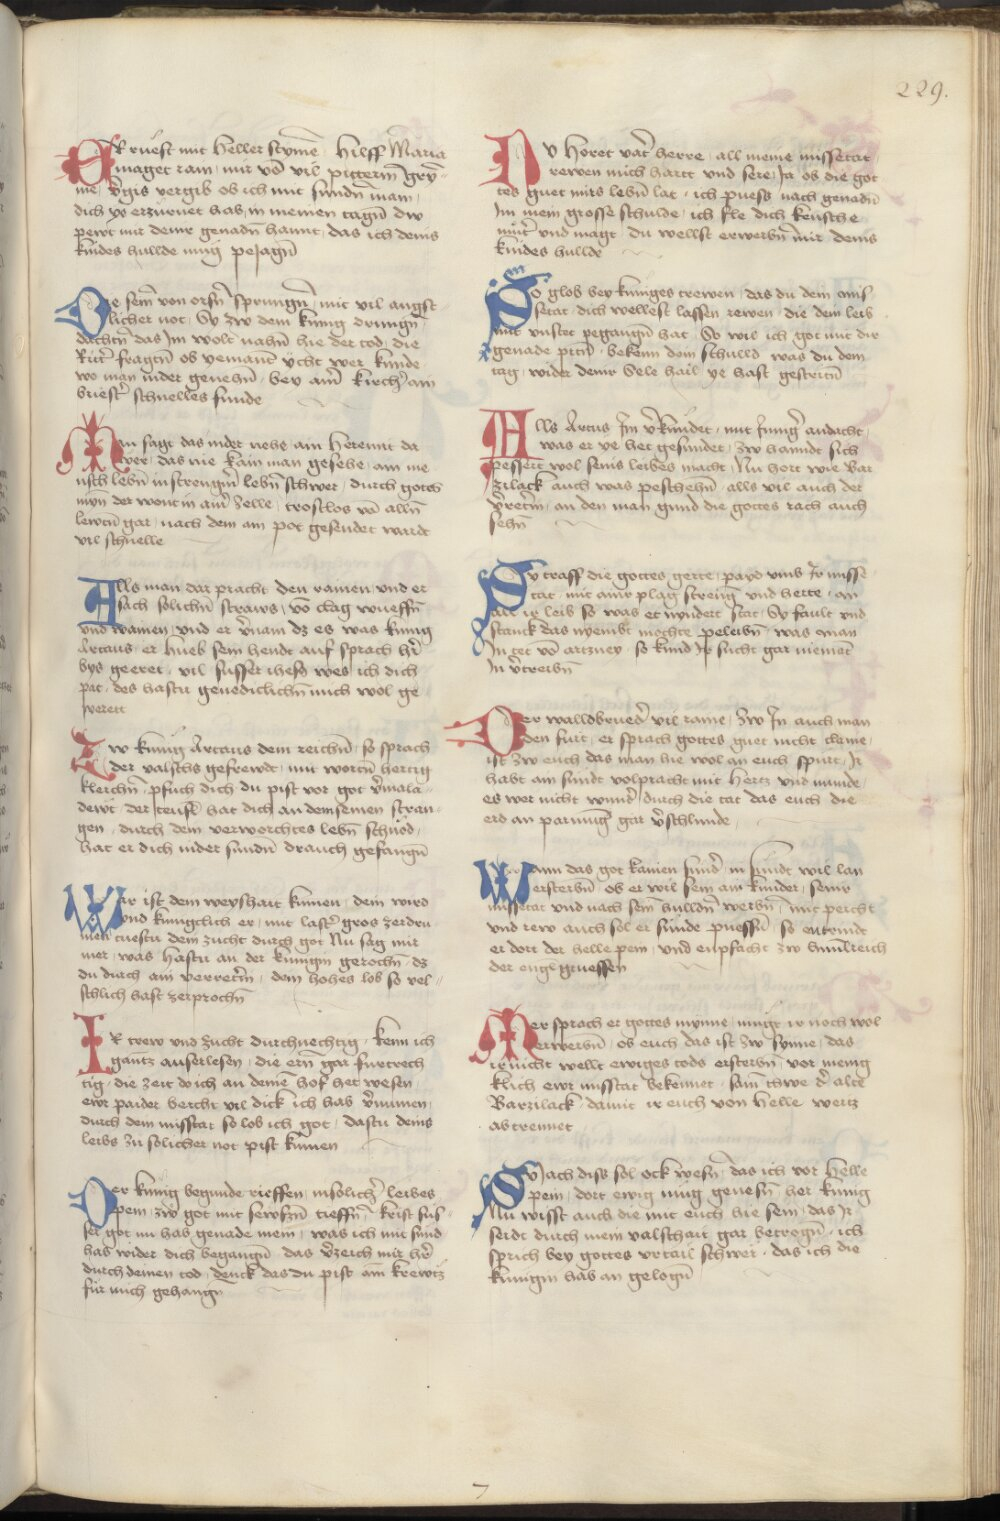 229.
Er ruest mit heller stymē · Hilff Maria
maget rain · mir vō vil pitterm̄ gry=
me / v̓gis vergib ob ich mit sundn̄ man /
dich ye erzurnet hab / in meinen tagn̄ dw
pewt mir deinr genadn̄ hannt / das ich deins
kindes hullde mug pejagn̄
Die sein̄ von orsn̄ sprungn̄ / mit vil angst
licher not / Sy zw dem kunig drungn̄
dachtn̄ das Im wolt nahn̄ hie der tod / die
Ritt̓ fragtn̄ ob yemant ycht wer kunde
wo man nider genehn̄ / bey aim̄ kirch̓ am
briest̓ schnelles funde
Man sagt das nider nehe · ain Heremit da
wer / das nie kain man gesehe · ain me
nsch lebn̄ in strengm̄ lebn̄ schwer / durch gotes
myn̄ der wont in aim̄ zelle / trostlos vō alln̄
lewtn̄ gar / nach dem ain pot gesendet wardt
vil schnelle
Alls man dar pracht den rainen / und er
sach solichn̄ straws / vō clag wueffn̄
und wainen / und er v̓nam dz es was kunig
Artaus / er hueb sein hendt auf sprach hr̄
bys geeret / vil susser ihesu wes ich dich
pat / des hastu genediclichn̄ mich wol ge
werett
Zw kunig Artaus dem reichn̄ / so sprach
der valschs gefrewdt / mit wortn̄ hertig
klerchn̄ / pfuch dich du pist vor got v̓mala=
dewt / der teufl̓ hat dich an demseinen stran=
gen / durch dein verworchtes lebn̄ schnod /
hat er dich nider sundn̄ drauch gefangn̄
Wir ist dein weyshait kumen / dein wird
und kungclich er / mit last̓ gros zerdru
men tuestu dein zucht durch got Nu sag mir
mer / was hastu an der kunigin gerochn̄ / dz
du durch ain verretrin̄ / dein hohes lob so vel=
schlich hast zerprochn̄
Ir trew und zucht durchnechtig / kenn ich
gantz auserlesen / die ern̄ gar furtrech
tig / die zeit do ich an deinē hof het wesen /
ewr paider bercht vil dick ich hab v̓numen /
durch dein misstat so lob ich got / dastu deins
leibs zu solicher not pist kumen
Der kunig begunde rieffen / in solich̓ leibes
pein / zw got mit sewfzn̄ tieffn̄ / krist sus=
ser got nu hab genade mein / was ich mit sund
hab wider dich begangn̄ / das v̓zeich mir hr̄
durch deinen tod / denck das du pist ain krewtz
fur mich gehangn̄
Du horet vat̓ herre · all meine missetat
rewen mich hartt und sere / Ja ob die got
tes guet mirs lebn̄ lat · ich puess nach genadn̄
Im mein grosse schulde / ich fle dich keusche
mūt̓ und magt · du wellst erwerbn̄ mir deins
kindes hullde
So glob bey kuniges trewen / das du dein mis=
setat / dich wellest lassen rewen / die dein leib
mit unstet pegangn̄ hat / So wil ich got mit dir
genade pittn̄ / bekenn dein schulld · was du dein
tag / wider deinr Sele hail / ye hast gestritn̄
Alls Artus Im v̓kundet / mit Innig̓ andacht /
was er ye het gesundet / zw hanndt sich
pessert wol seins leibes macht / Nu hort wie Bar
zilack / auch was peschehn̄ / alls vil auch der
v̓retrin̄ / an den man gund die gottes rach auch
sehn̄
Sy traff die gottes gerte / payd umb Ir misse
tat / mit ainr plag streng und herte · an
all ir leib so was et nyndert stat / Sy fault und
stanck das nyembt mochte peleibn̄ / was man
In tet vō artzney · so kund Ir sucht gar niemet
In v̓treibn̄
Der walldbrued̓ vil raine / zw In auch man
den furt / er sprach gottes guet nicht claine /
ist zw euch das man hie wol an euch spurt / Ir
habt ain sundt volpracht mit hertz und munde /
es wer nicht wund̓ / durch die tat das euch die
erd an parmug̓ gar v̓schlunde /
Wann das got kainen sund̓ / in sundt wil lan
ersterbn̄ · ob er wil sein ain kunder / seinr
missetat und nach sein̄ hulldn̄ werbn̄ / mit peicht
und rew auch sol er sunde puessn̄ / so entrindt
er dort der helle pein / und enpfacht zw himlreich
der engl̓ gruessen
Mer sprach er gottes mynne / mugt ir noch wol
erwerbn̄ / ob euch das ist zw synne / das
ir nicht wellt ewiges tods ersterbn̄ / vor menig
klich ewr misstat bekennet / sam thwe d̓ alte
Barzilack / damit ir euch von helle weitz
abtrennet
Sy) ach diss sol ock wesn̄ / das ich vor helle
pein / dort ewig mug genesn̄ / her kunig
Nu wisst auch die mit euch hie sein / das Ir
seidt durch mein valschait gar betrogn̄ / ich
sprich bey gottes urtail schwer / das ich die
kunigin hab an gelogn̄